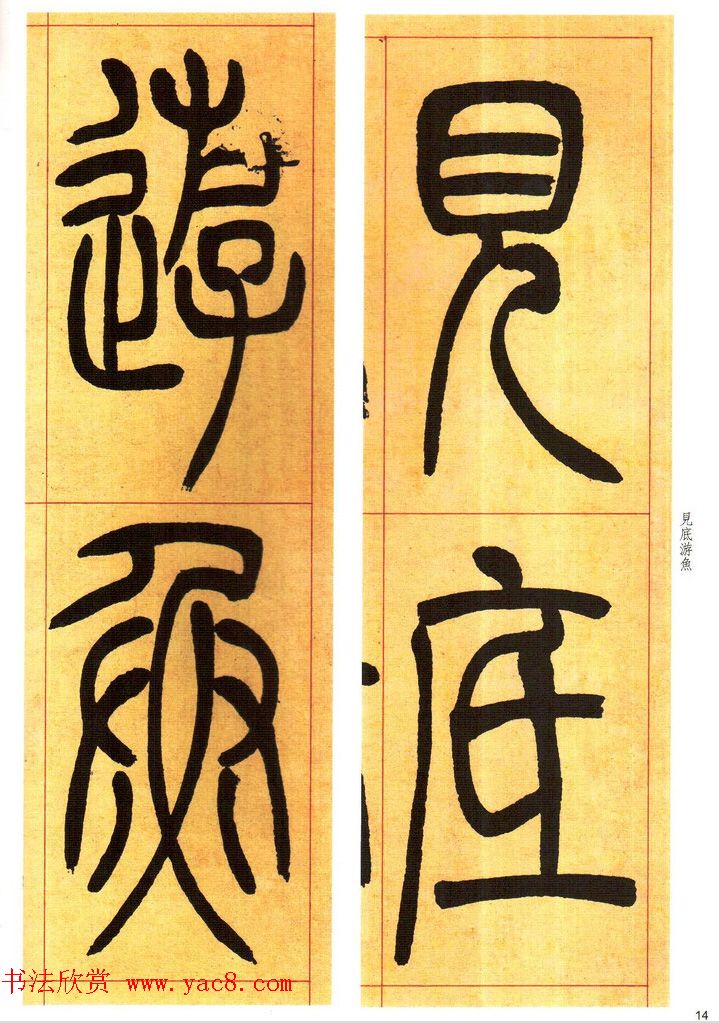 見底
遊魚
見底游魚
书法欣赏 www.yac8.com
14